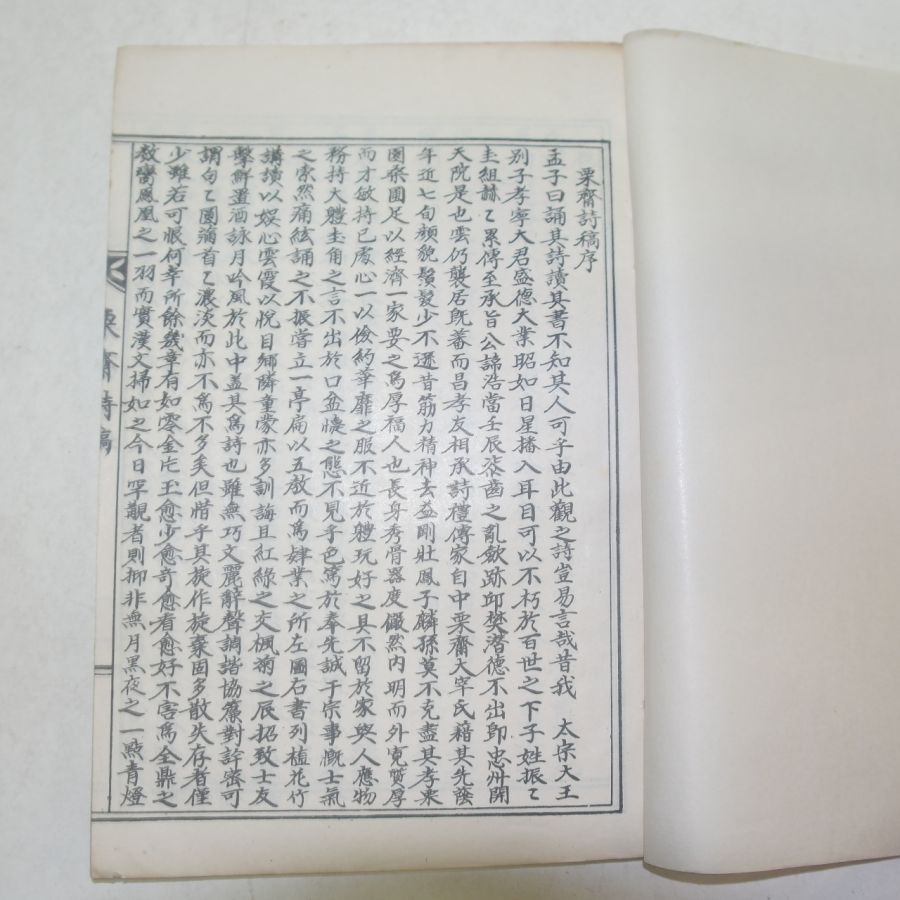 栗齋詩稿序
孟子曰誦其詩讀其書不知其人可乎由此觀之詩豈易言哉昔我 太宗大王
別子孝寧大君盛德大業昭如日星播入耳目可以不朽於百世之下子姓振〻
圭組赫〻累傳至承旨公諱浩當壬辰
之亂歛跡邱樊潛德不出卽忠州開
天院是也雲仍襲居旣蕃而昌孝友相承詩禮傳家自中栗齋大宰氏藉其先蔭
年近七旬顏貌鬚髮少不遜昔筋力精神去益剛壯鳳子麟孫莫不克盡其孝栗
園桑圃足以經濟一家要之爲厚福人也長身秀骨器度儼然內明而外寬質厚
而才敏持己處心一以儉約華靡之服不近於軆玩好之具不留於家與人應物
務持大軆圭角之言不出於口忿懥之態不見乎色篤於奉先誠于宗事慨士氣
之索然痛絃誦之不振嘗立一亭扁以五教而爲肄業之所左圖右書列植花竹
講讀以娛心雲霞以悅目鄕隣童蒙亦多訓誨且紅綠之交楓菊之辰招致士友
擊鮮置酒詠月吟風於此中盖其爲詩也雖無巧文麗辭聲調諧協簾對詳密可
謂句〻圓滿首〻濃淡而亦不爲不多矣但惜乎其旋作旋棄固多散失存者僅
少雖若可恨何幸所餘幾章有如零金片玉愈少愈奇愈看愈好不害爲全鼎之
一羽而實漢文掃如之今日罕觀者則抑非無月黑夜之一點青燈
栗齋詩稿